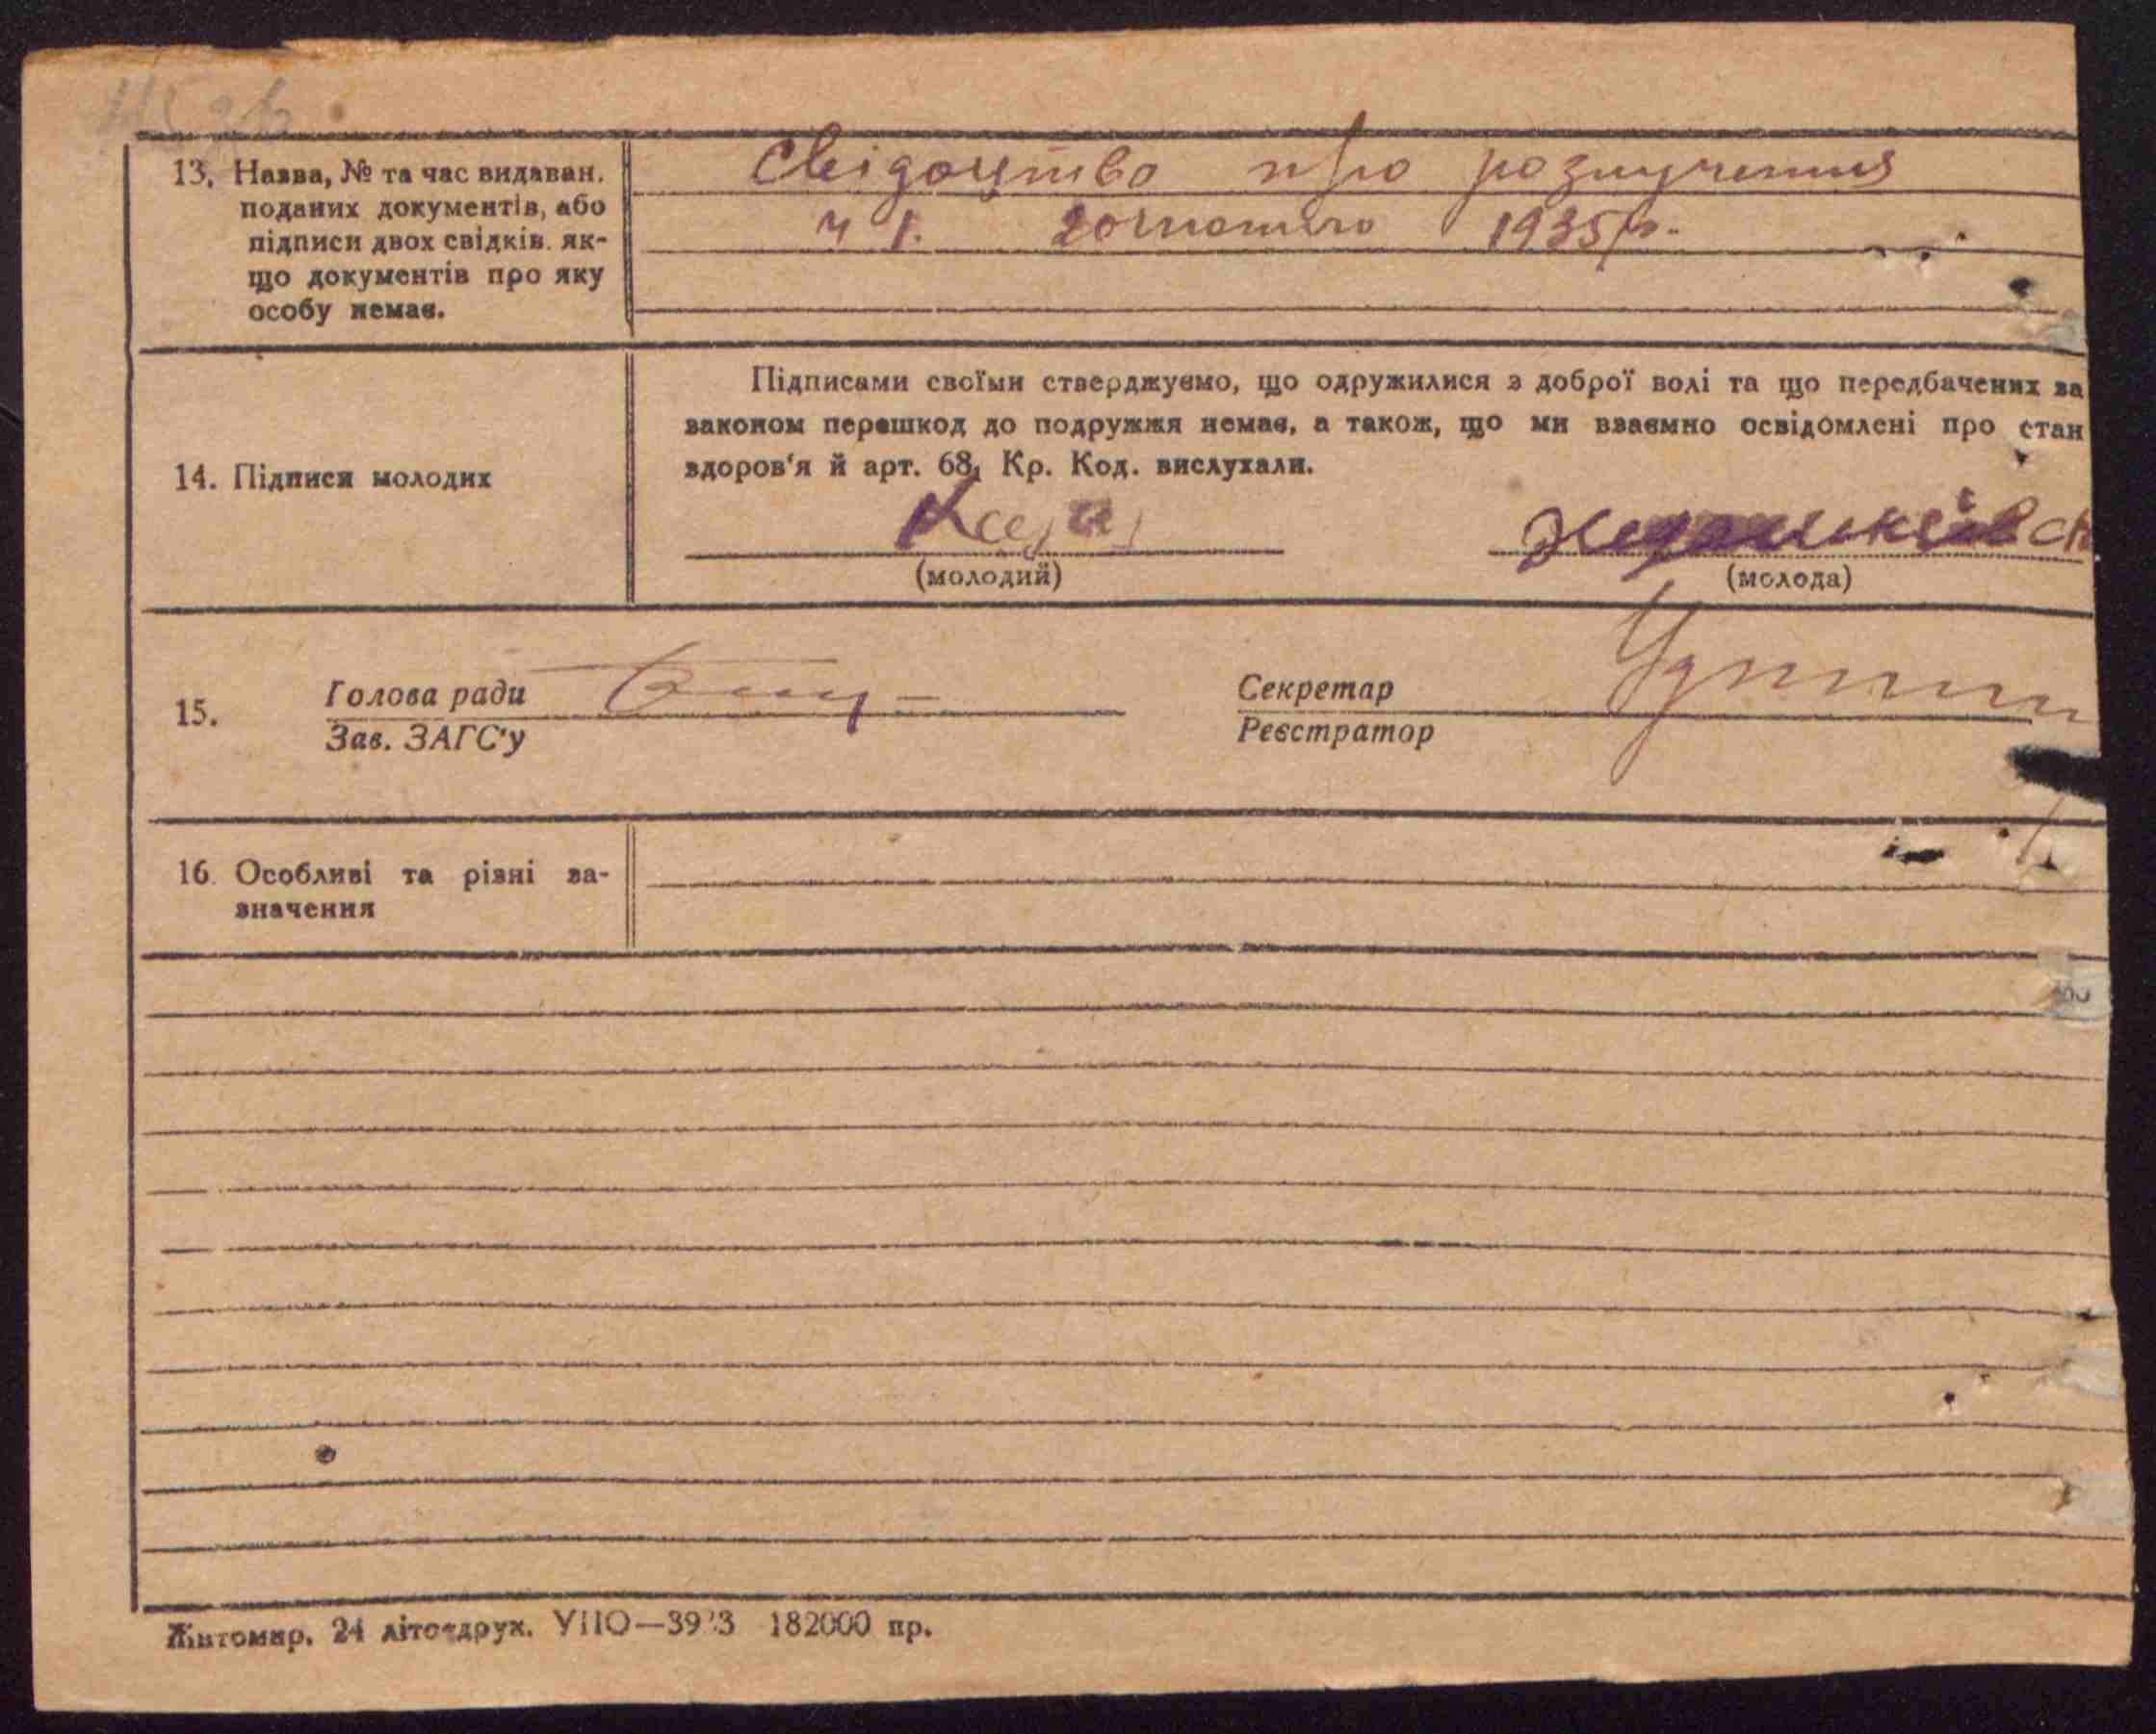 13. Назва, № та час видаван.
поданих документів, або
підписи двох свідків. як-
що документів про яку
особу немає.
Свідоцтво про розлучення
ч 1. 20 лютого 1935 р.
14. Підписи молодих
Підписами своїми стверджуємо, що одружилися з доброї волі та що передбачених за
законом перешкод до подружжя немає, а також, що ми взаємно освідомлені про стан
здоров'я й арт. 68, Кр. Код. вислухали.
(молодий) (молода)
15. Голова ради Секретар
Зав. ЗАГС'у Реєстратор
16. Особливі та різні за-
значення
Житомир. 24 літодрук. УПО—39 3 182000 пр.